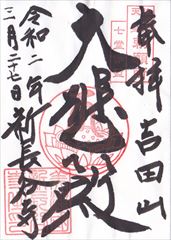 奉拝
吉田山
大悲殿
令和二年
三月二十七日
新長谷寺